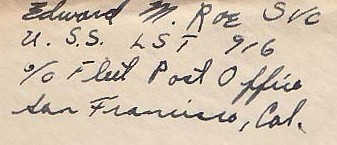 Edward M. Roe S1/c
U.S.S. LST 916
c/o Fleet Post Office
San Francisco, Cal.